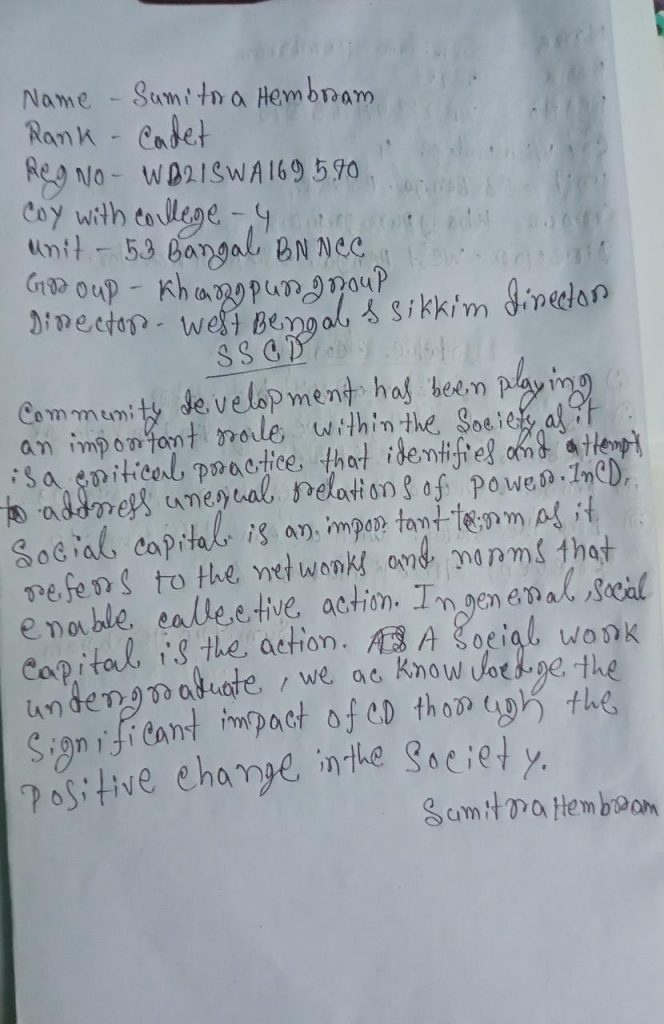 Name - Sumitra Hembram
Rank - Cadet
Reg No - WB21SWA169590
Coy with college - 4
unit - 53 Bangal BN NCC
Group - Kharagpur group
Director - West Bengal & Sikkim director
SSCD
Community development has been playing
an important role within the Society as it
is a critical practice that identifies and attempt
to address unequal relations of power. In CD,
Social capital is an important term as it
refers to the networks and norms that
enable collective action. In general, social
capital is the action. As A Social work
undergraduate, we acknowledge the
Significant impact of CD thorough the
positive change in the Society.
Sumitra Hembram